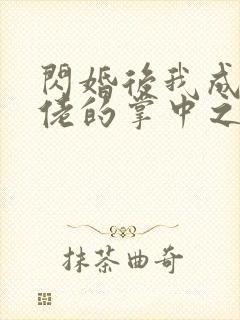 閃婚後我成
佬的掌中之
抹茶曲奇